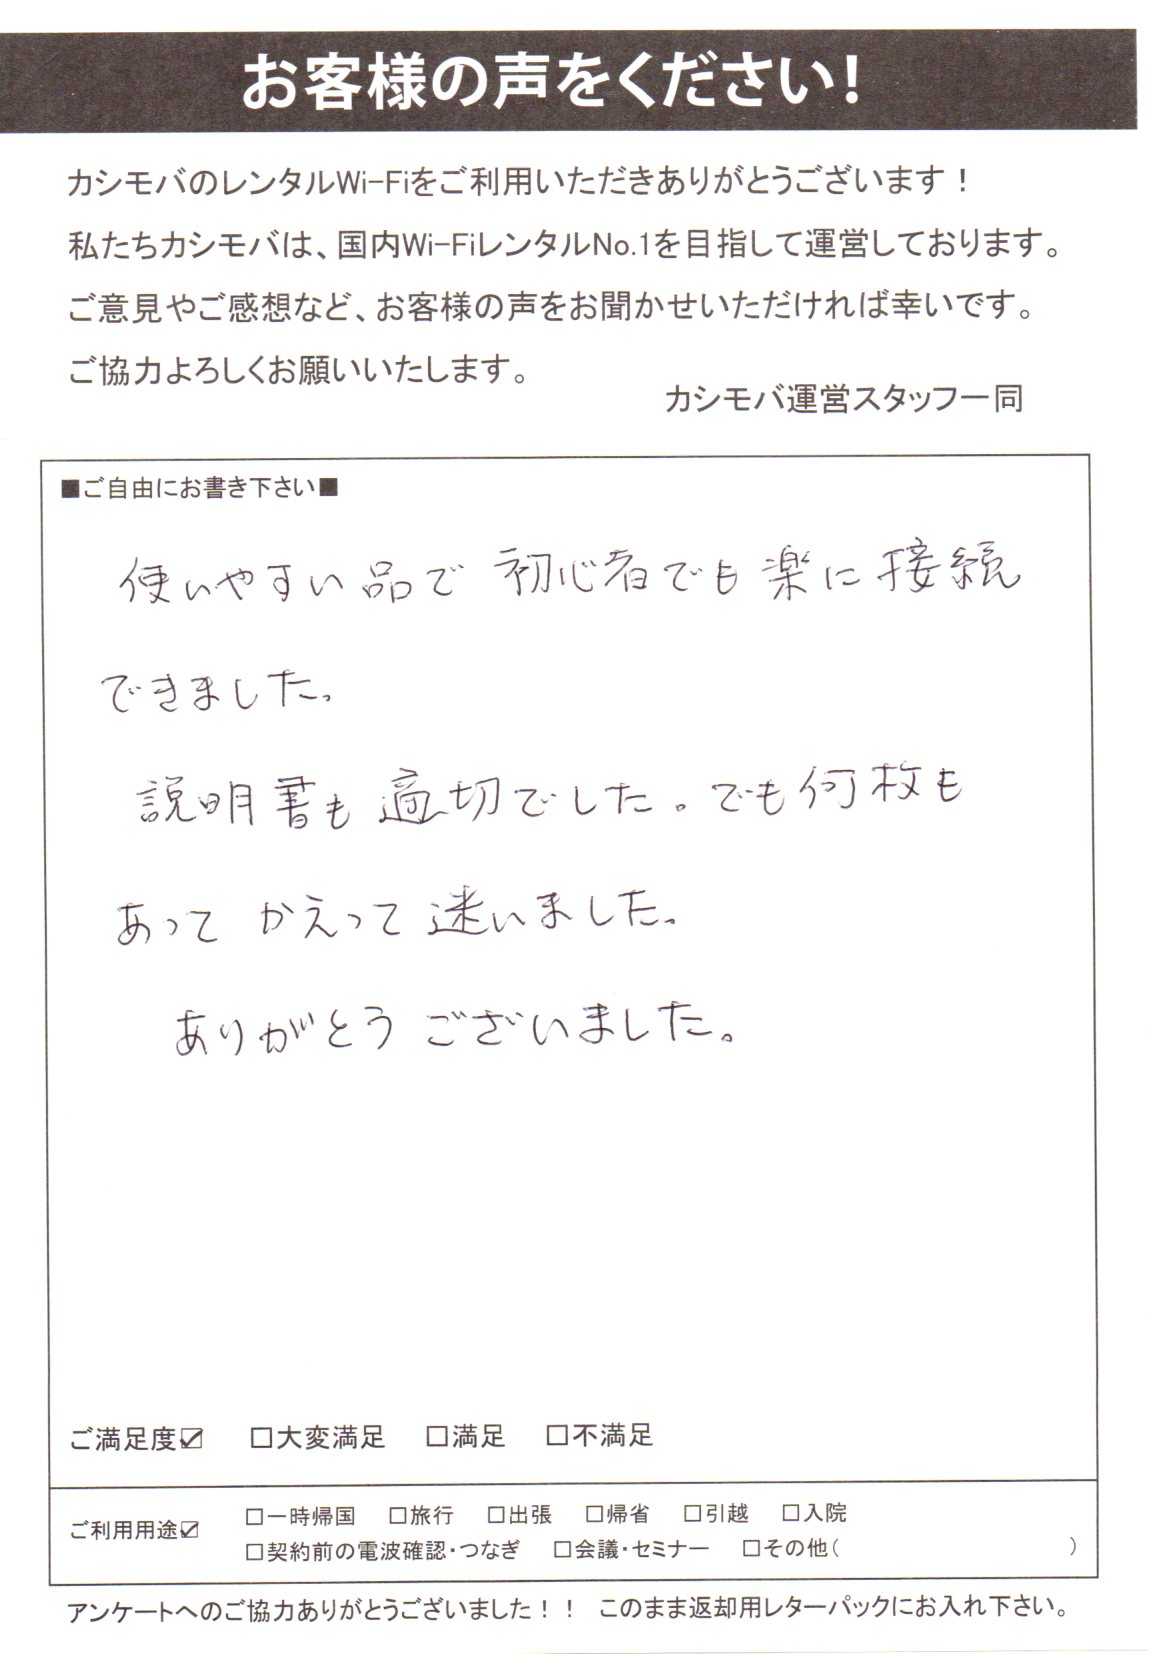 お客様の声をください!
カシモバのレンタルWi-Fiをご利用いただきありがとうございます！
私たちカシモバは、国内Wi-FiレンタルNo.1を目指して運営しております。
ご意見やご感想など、お客様の声をお聞かせいただければ幸いです。
ご協力よろしくお願いいたします。
カシモバ運営スタッフ一同
■ご自由にお書き下さい■
使いやすい品で初心者でも楽に接続
できました。
説明書も適切でした。でも何枚も
あって かえって迷いました。
ありがとうございました。
ご満足度☑ □大変満足 □満足 □不満足
ご利用用途☑ □一時帰国 □旅行 □出張 □帰省 □引越 □入院
□契約前の電波確認・つなぎ □会議・セミナー □その他( )
アンケートへのご協力ありがとうございました！！ このまま返却用レターパックにお入れ下さい。